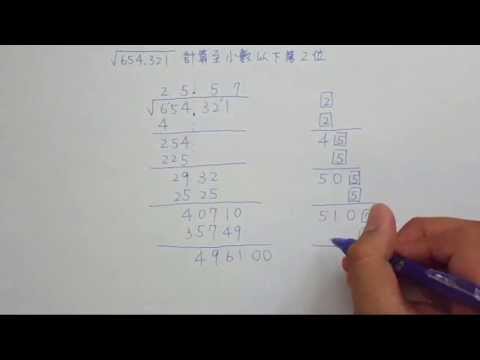 √654.321 計算至小數以下第2位
25.57
√654.321
4
254
225
2932
2525
40710
35749
496100
2
2
45
5
505
5
510